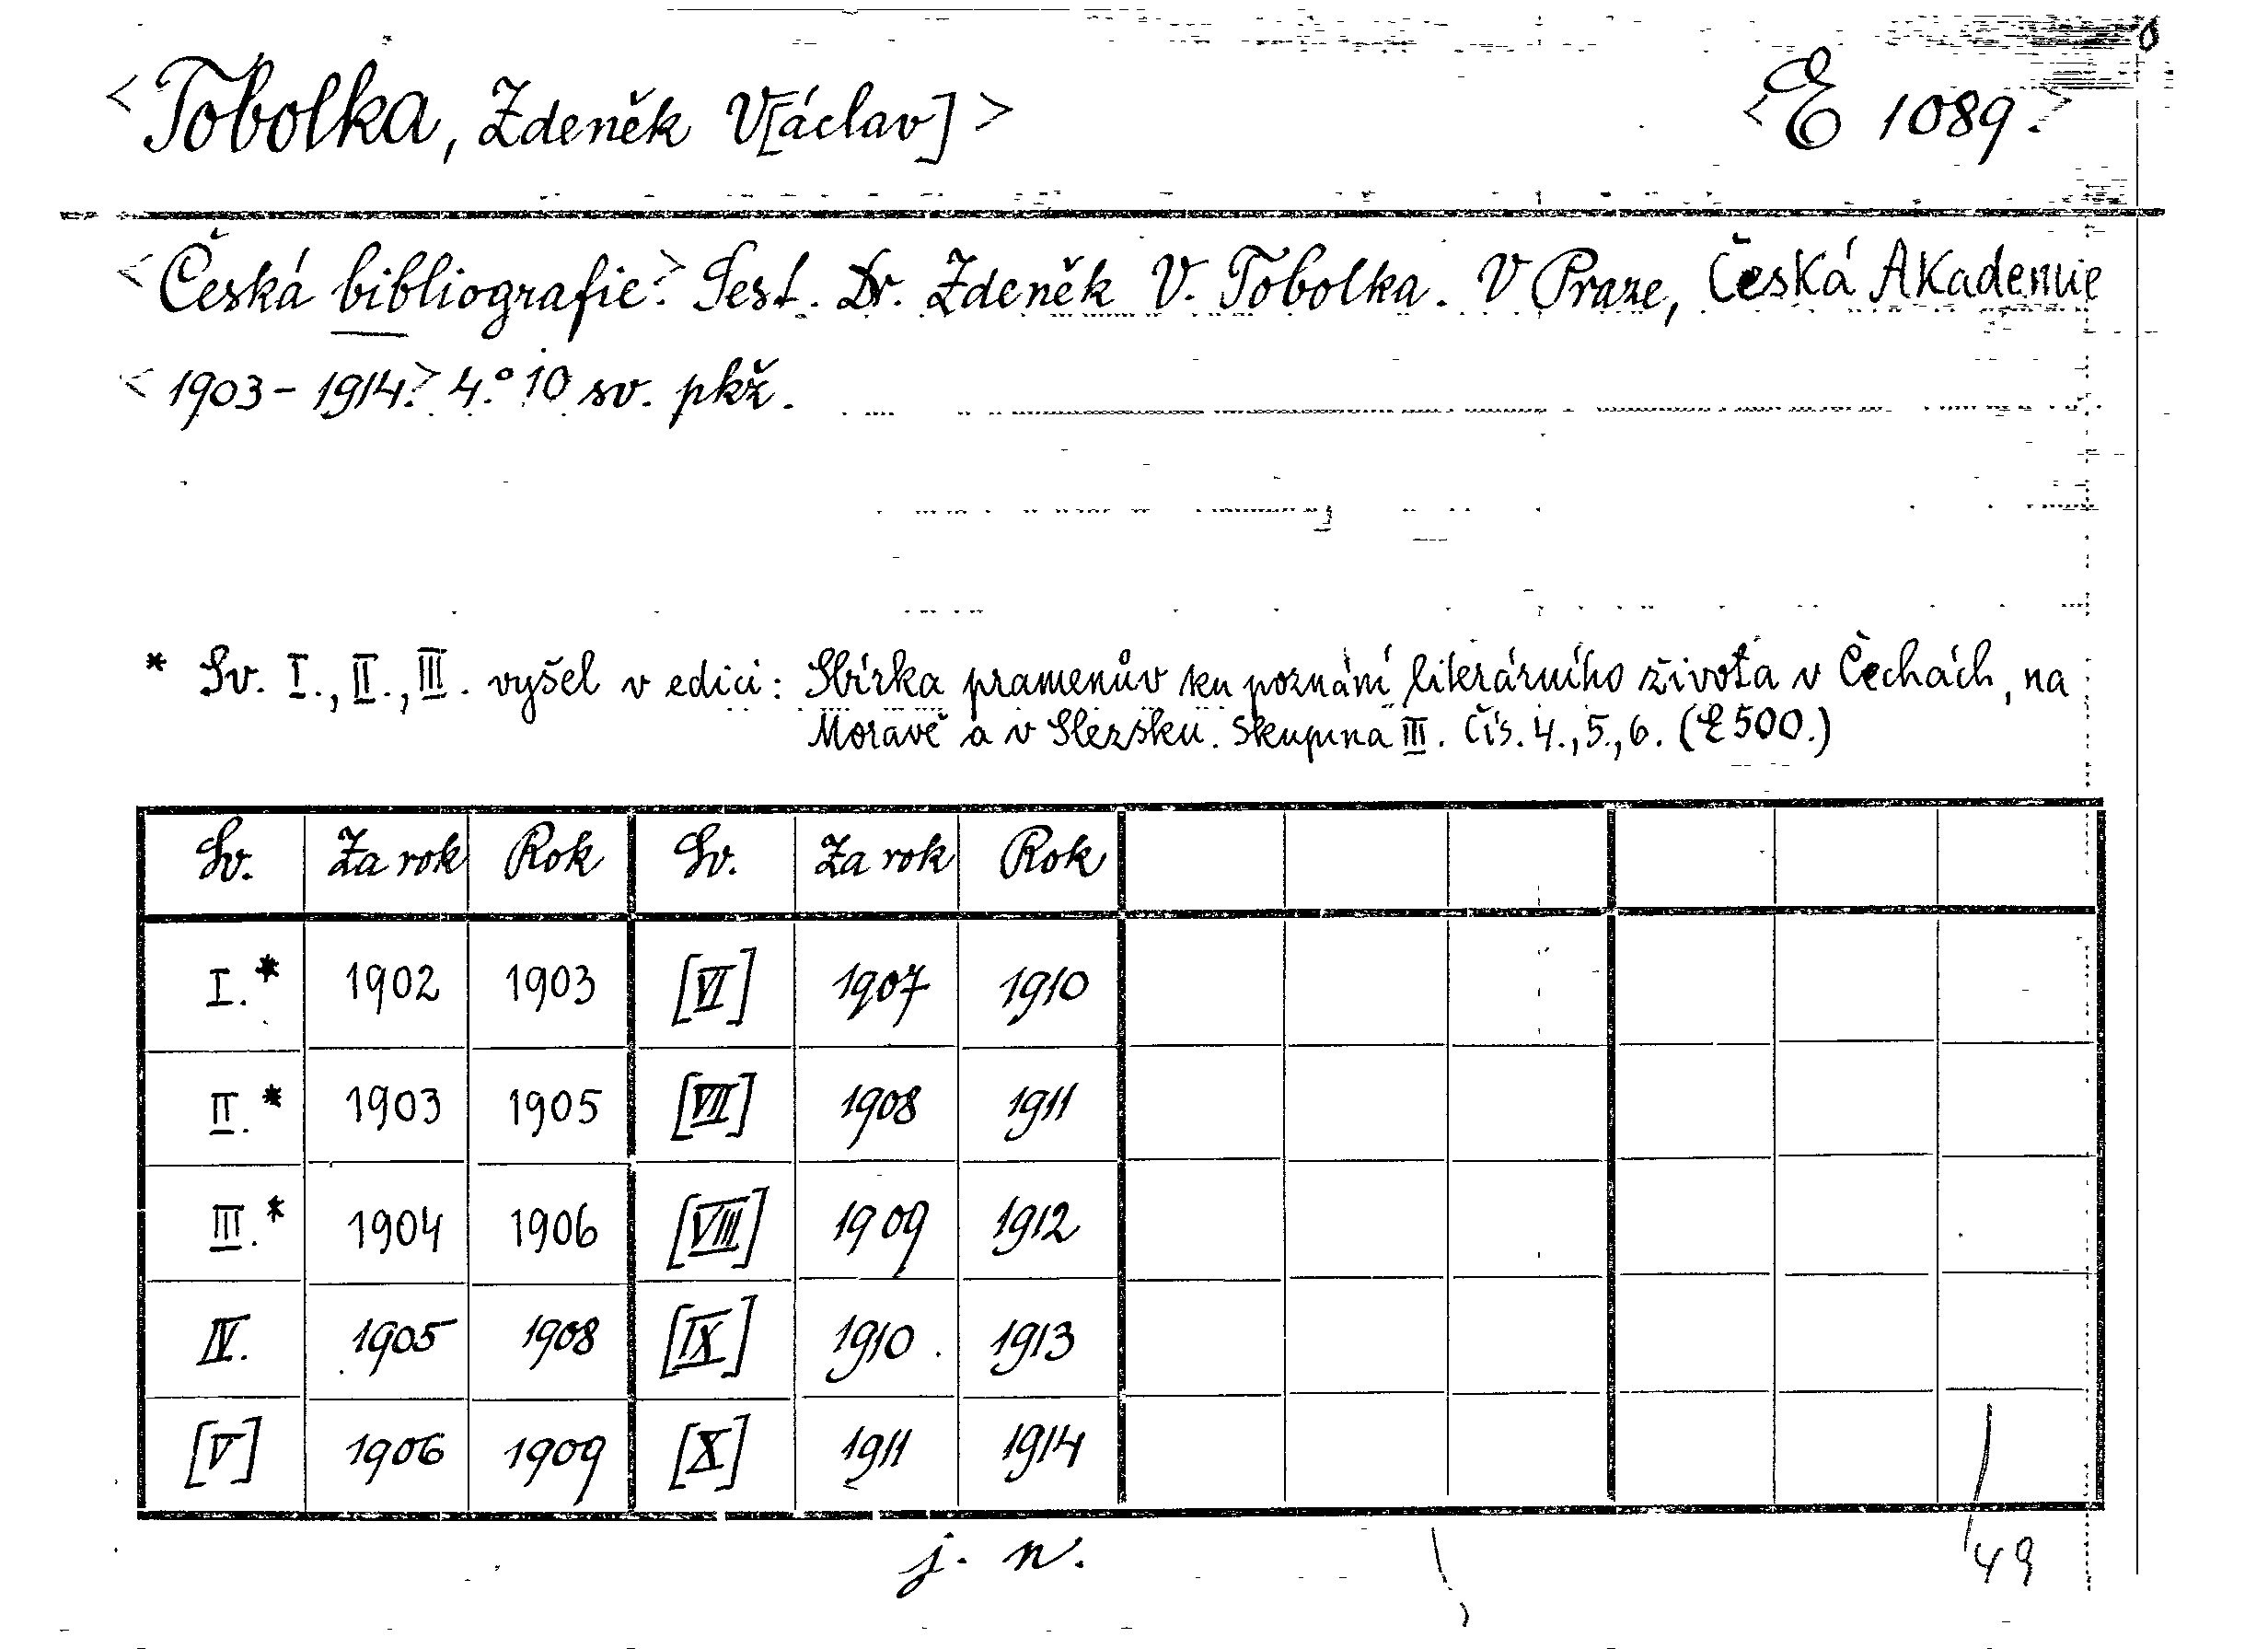 <Tobolka, Zdeněk V[áclav]> <E 1089.>
<Česká bibliografie.> Sest. Dr. Zdeněk V. Tobolka. V Praze, Česká Akademie
<1903-1914.> 4.° 10 sv. pkž.
* Sv. I., II., III. vyšel v edici: Sbírka pramenův ku poznání literárního života v Čechách, na
Moravě a v Slezsku. Skupina III. Čís. 4., 5., 6. (E 500.)
Sv. Za rok Rok Sv. Za rok Rok
I.* 1902 1903 [VI] 1907 1910
II.* 1903 1905 [VII] 1908 1911
III.* 1904 1906 [VIII] 1909 1912
IV. 1905 1908 [IX] 1910 1913
[V] 1906 1909 [X] 1911 1914
j. n.
49